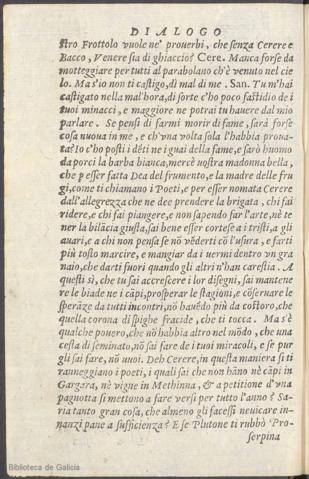 DIALOGO
stro Frottolo vuole ne' prouerbi, che senza Cerere e
Bacco, Venere sia di ghiaccio? Cere. Manca forse da
motteggiare per tutti al parabolano ch'è venuto nel cie
lo. Ma s'io non ti castigo, dì mal di me. San. Tu m'hai
castigato nella mal'hora, di sorte c'ho poco fastidio de i
tuoi minacci, e maggiore ne potrai tu hauere dal mio
parlare. Se pensi di farmi morir di fame, sarà forse
cosa nuoua in me, e ch'vna volta sola l'habbia proua-
ta? Io c'ho posti i dēti ne i guai della fame, e sarò huomo
da porci la barba bianca, mercè vostra madonna bella,
che p esser fatta Dea del frumento, e la madre delle fru
gi, come ti chiamano i Poeti, e per esser nomata Cerere
dall'allegrezza che ne dee prendere la brigata, chi fai
ridere, e chi fai piangere, e non sapendo far l'arte, nè te
ner la bilācia giusta, sai bene esser cortese a i tristi, a gli
auari, e a chi non pensa se nō vēderti cō l'usura, e farti
più tosto marcire, e mangiar da i uermi dentro vn gra
naio, che darti fuori quando gli altri n'han carestia. A
questi sì, che tu sai accrescere i lor disegni, sai mantene
re le biade ne i cāpi, prosperar le stagioni, e cōseruare le
sperāze da tutti incontri, nō hauēdo più da costoro, che
quella corona di spighe fracide, che ti tocca. Ma s'è
qualche pouero, che nō habbia altro nel mōdo, che una
cesta di seminato, nō sai fare de i tuoi miracoli, e se pur
gli sai fare, nō uuoi. Deh Cerere, in questa maniera si ti
ranneggiano i poeti, i quali sai che non hāno nè cāpi in
Gargara, nè vigne in Methinna, & a petitione d'vna
pagnotta si mettono a fare versi per tutto l'anno? Sa-
ria tanto gran cosa, che almeno gli facessi neuicare in-
nanzi pane a sufficienza? E se Plutone ti rubbò Pro-
serpina
Biblioteca de Galicia